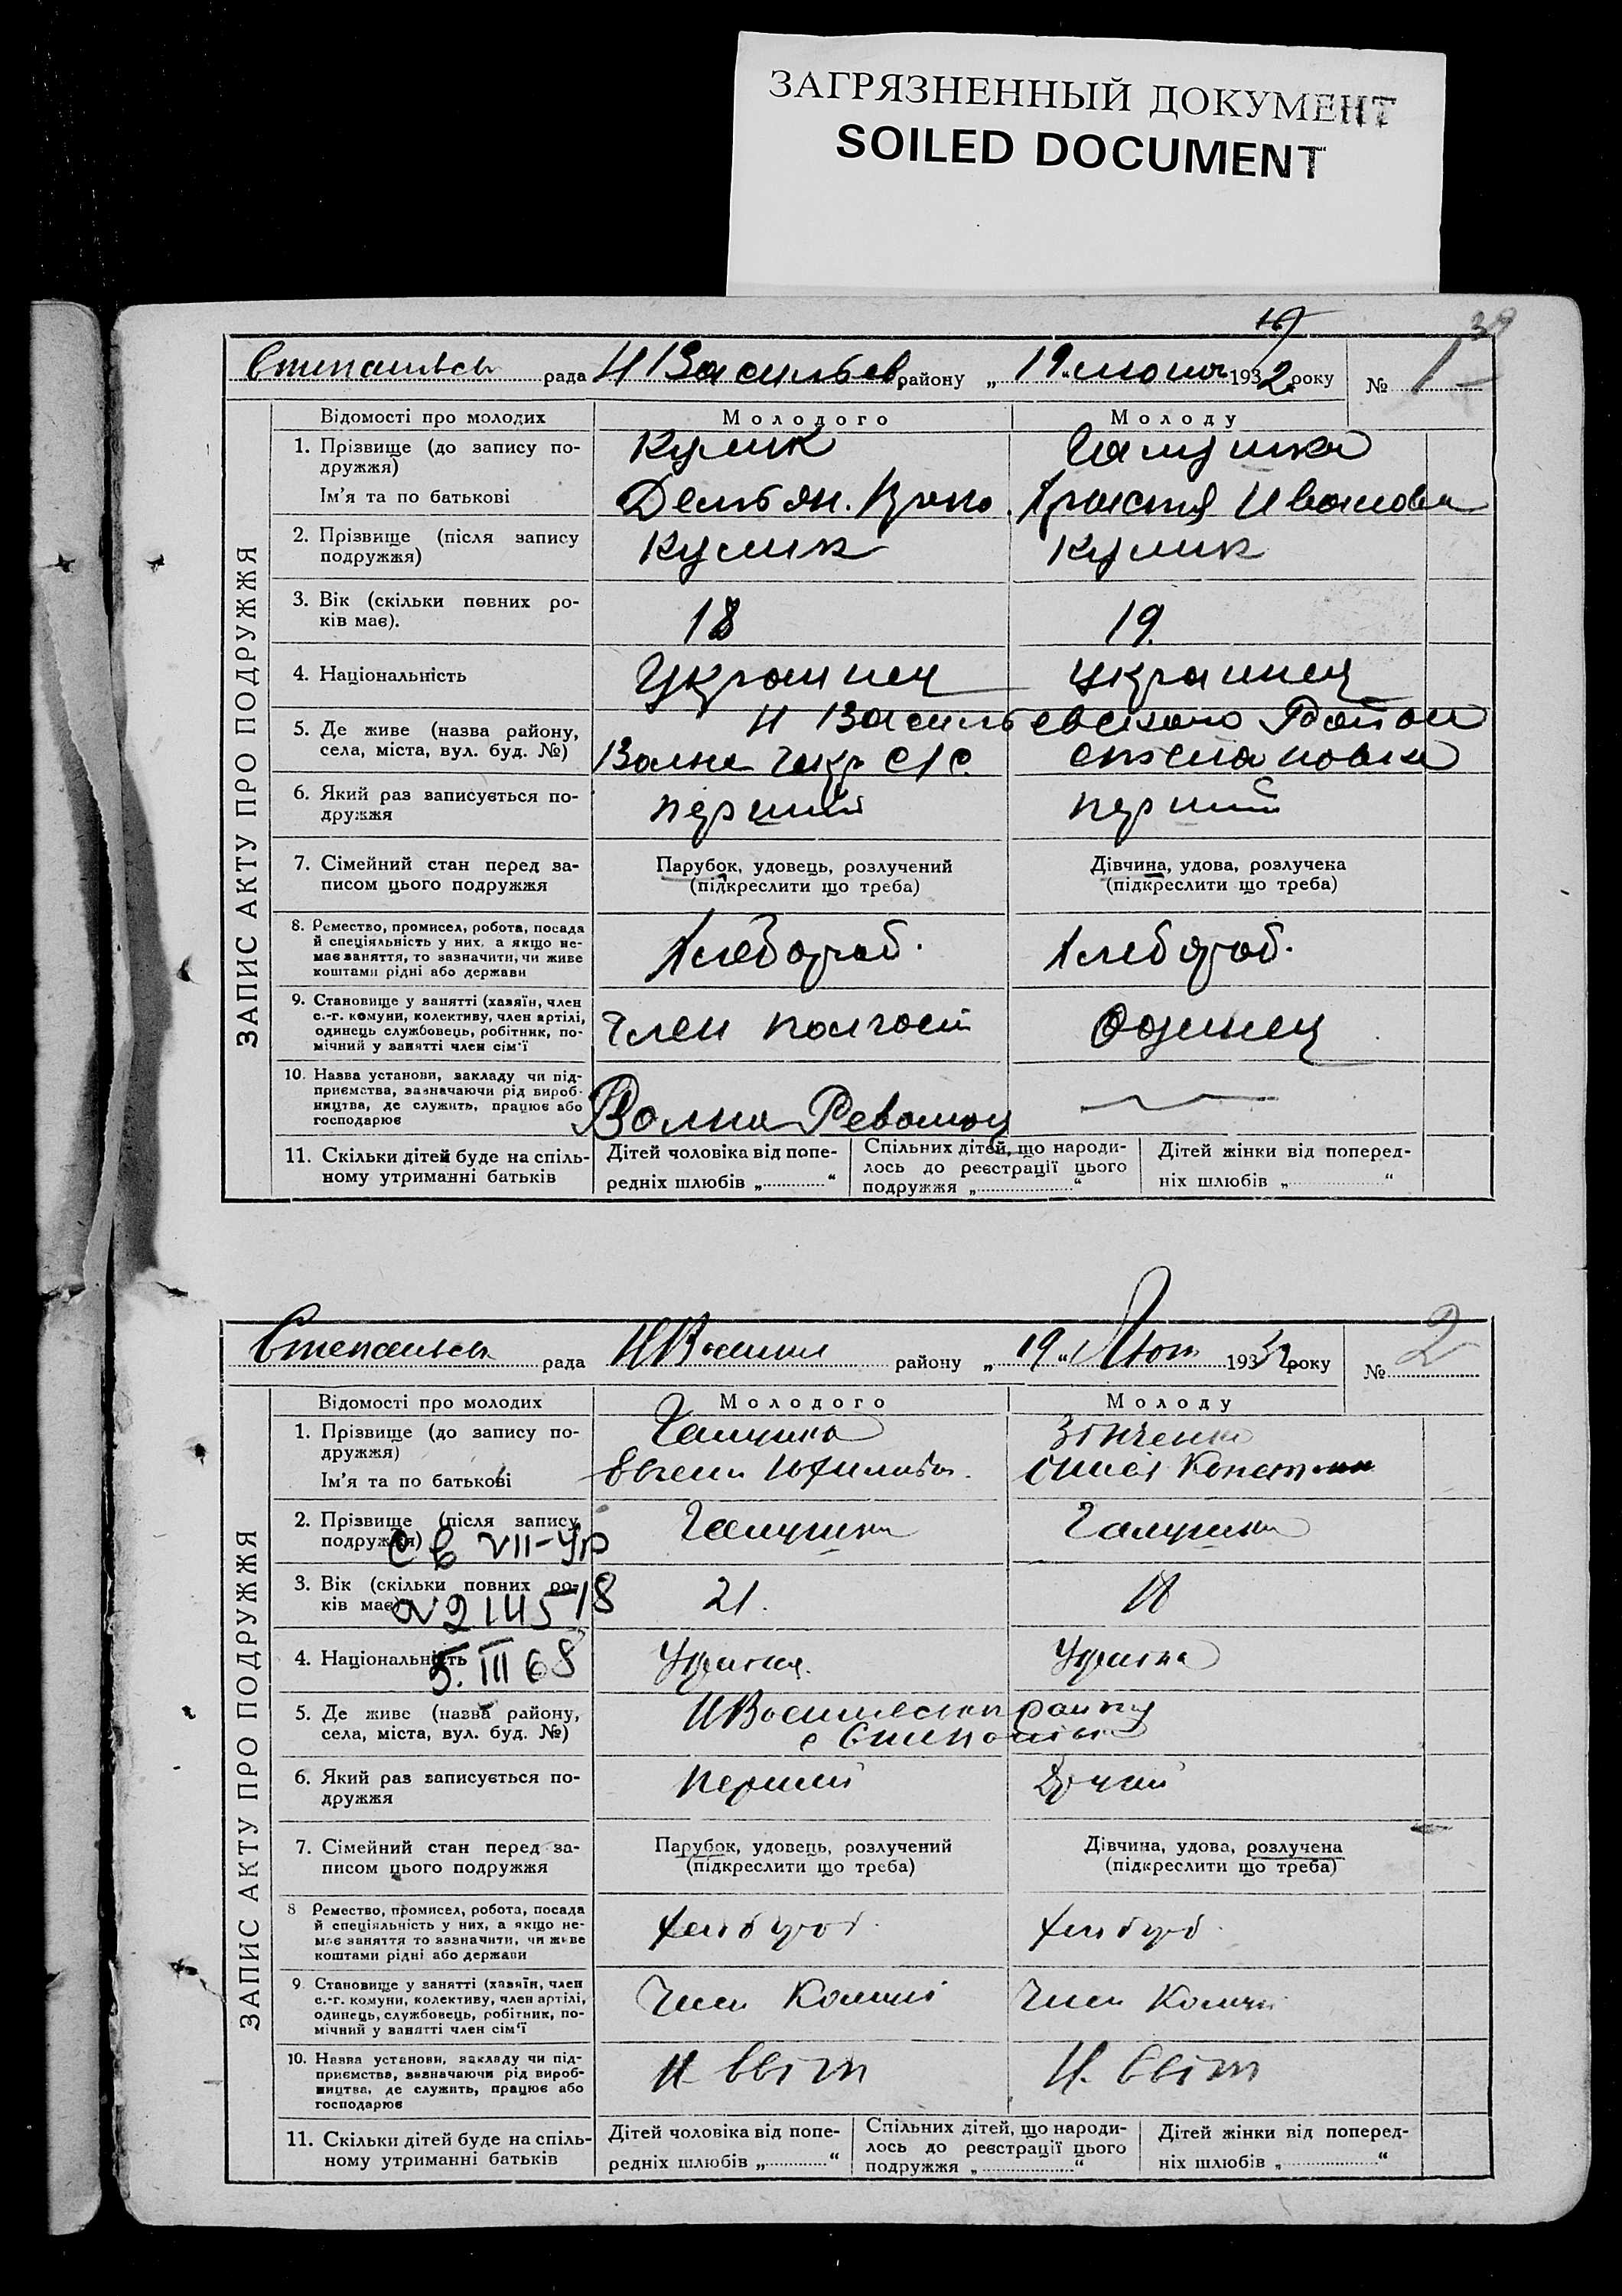 ЗАГРЯЗНЕННЫЙ ДОКУМЕНТ
SOILED DOCUMENT
рада Н Васильев району „19“ 1932 року № 1
ЗАПИС АКТУ ПРО ПОДРУЖЖЯ
Відомості про молодих Молодого Молоду
1. Прізвище (до запису по-
дружжя) Кулик Галушка
Ім'я та по батькові Ивановна
2. Прізвище (після запису
подружжя) Кулик Кулик
3. Вік (скільки повних ро-
ків має). 18 19.
4. Національність Украинец украинец
5. Де живе (назва району,
села, міста, вул. буд. №) Н Васильевского Район
6. Який раз записується по-
дружжя перший перший
7. Сімейний стан перед за-
писом цього подружжя
Парубок, удовець, розлучений
(підкреслити що треба)
Дівчина, удова, розлучена
(підкреслити що треба)
8. Ремество, промисел, робота, посада
й спеціяльність у них, а якщо не-
має заняття, то зазначити, чи живе
коштами рідні або держави
Хлебороб. Хлебороб.
9. Становище у занятті (хазяїн, член
с.-г. комуни, колективу, член артілі,
одинець службовець, робітник, по-
мічний у занятті член сім'ї
Член Одинец
10. Назва установи, закладу чи під-
приємства, зазначаючи рід вироб-
ництва, де служить, працює або
господарює
Волна Революц
11. Скільки дітей буде на спіль-
ному утриманні батьків
Дітей чоловіка від попе-
редніх шлюбів „ “
Спільних дітей, що народи-
лось до реєстрації цього
подружжя „ “
Дітей жінки від поперед-
ніх шлюбів „ “
рада району „19“ 1932 року № 2
ЗАПИС АКТУ ПРО ПОДРУЖЖЯ
Відомості про молодих Молодого Молоду
1. Прізвище (до запису по-
дружжя) Галушка Зінченко
Ім'я та по батькові
2. Прізвище (після запису
подружжя) Галушка Галушка
св VII-УР
3. Вік (скільки повних ро-
ків має) 21. 18
№ 214518
4. Національність
5. III 68
5. Де живе (назва району,
села, міста, вул. буд. №)
6. Який раз записується по-
дружжя Перший Другий
7. Сімейний стан перед за-
писом цього подружжя
Парубок, удовець, розлучений
(підкреслити що треба)
Дівчина, удова, розлучена
(підкреслити що треба)
8 Ремество, промисел, робота, посада
й спеціяльність у них, а якщо не-
має заняття то зазначити, чи живе
коштами рідні або держави
хлебороб. хлебороб.
9. Становище у занятті (хазяїн, член
с.-г. комуни, колективу, член артілі,
одинець, службовець, робітник, по-
мічний у занятті член сім'ї
Член Член
10. Назва установи, закладу чи під-
приємства, зазначаючи рід вироб-
ництва, де служить, працює або
господарює
Н. Світ Н. Світ
11. Скільки дітей буде на спіль-
ному утриманні батьків
Дітей чоловіка від попе-
редніх шлюбів „ “
Спільних дітей, що народи-
лось до реєстрації цього
подружжя „ “
Дітей жінки від поперед-
ніх шлюбів „ “